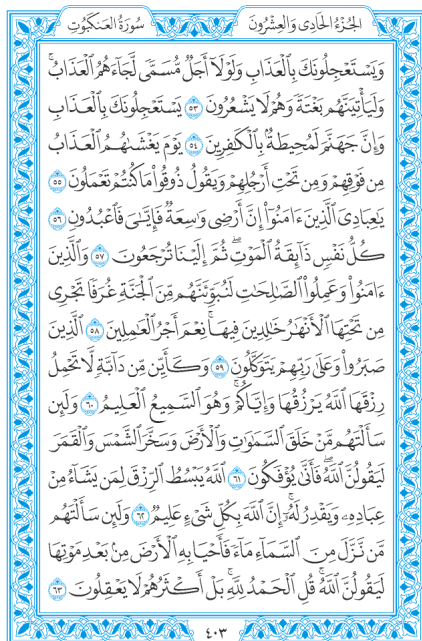 الجُزْءُ الحَادِى وَالعِشْرُونَ
سُورَةُ العَنكَبُوتِ
وَيَسْتَعْجِلُونَكَ بِالْعَذَابِ وَلَوْلَا أَجَلٌ مُّسَمًّى لَّجَاءَهُمُ الْعَذَابُ ۚ
وَلَيَأْتِيَنَّهُم بَغْتَةً وَهُمْ لَا يَشْعُرُونَ ٥٣ يَسْتَعْجِلُونَكَ بِالْعَذَابِ
وَإِنَّ جَهَنَّمَ لَمُحِيطَةٌ بِالْكَٰفِرِينَ ٥٤ يَوْمَ يَغْشَىٰهُمُ الْعَذَابُ
مِن فَوْقِهِمْ وَمِن تَحْتِ أَرْجُلِهِمْ وَيَقُولُ ذُوقُوا مَا كُنتُمْ تَعْمَلُونَ ٥٥
يَٰعِبَادِيَ الَّذِينَ ءَامَنُوا إِنَّ أَرْضِى وَٰسِعَةٌ فَإِيَّٰىَ فَاعْبُدُونِ ٥٦
كُلُّ نَفْسٍ ذَآئِقَةُ الْمَوْتِ ۖ ثُمَّ إِلَيْنَا تُرْجَعُونَ ٥٧ وَالَّذِينَ
ءَامَنُوا وَعَمِلُوا الصَّٰلِحَٰتِ لَنُبَوِّئَنَّهُم مِّنَ الْجَنَّةِ غُرَفًا تَجْرِى
مِن تَحْتِهَا الْأَنْهَٰرُ خَٰلِدِينَ فِيهَا ۚ نِعْمَ أَجْرُ الْعَٰمِلِينَ ٥٨ الَّذِينَ
صَبَرُوا وَعَلَىٰ رَبِّهِمْ يَتَوَكَّلُونَ ٥٩ وَكَأَيِّن مِّن دَآبَّةٍ لَّا تَحْمِلُ
رِزْقَهَا اللَّهُ يَرْزُقُهَا وَإِيَّاكُمْ ۚ وَهُوَ السَّمِيعُ الْعَلِيمُ ٦٠ وَلَئِن
سَأَلْتَهُم مَّنْ خَلَقَ السَّمَٰوَٰتِ وَالْأَرْضَ وَسَخَّرَ الشَّمْسَ وَالْقَمَرَ
لَيَقُولُنَّ اللَّهُ ۖ فَأَنَّىٰ يُؤْفَكُونَ ٦١ اللَّهُ يَبْسُطُ الرِّزْقَ لِمَن يَشَآءُ مِنْ
عِبَادِهِۦ وَيَقْدِرُ لَهُۥٓ ۚ إِنَّ اللَّهَ بِكُلِّ شَىْءٍ عَلِيمٌ ٦٢ وَلَئِن سَأَلْتَهُم
مَّن نَّزَّلَ مِنَ السَّمَآءِ مَآءً فَأَحْيَا بِهِ الْأَرْضَ مِنۢ بَعْدِ مَوْتِهَا
لَيَقُولُنَّ اللَّهُ ۚ قُلِ الْحَمْدُ لِلَّهِ ۚ بَلْ أَكْثَرُهُمْ لَا يَعْقِلُونَ ٦٣
٤٠٣